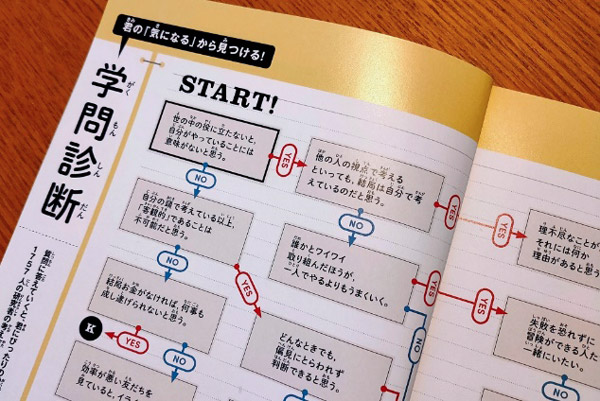 君の「気になる」から見つける!
学問診断
質問に答えていくと、君にぴったりの
1757人の研究者の考え
START!
世の中の役に立たないと、
自分がやっていることには
意味がないと思う。
YES
NO
他の人の視点で考える
といっても、結局は自分で考
えているのだと思う。
YES
NO
理不尽なことが
それには何か
理由があると思う
自分の頭で考えている以上、
「客観的」であることは
不可能だと思う。
NO
YES
誰かとワイワイ
取り組んだほうが、
一人でやるよりもうまくいく。
YES
NO
YES
失敗を恐れずに
冒険ができる人た
一緒にいたい。
結局お金がなければ、何事も
成し遂げられないと思う。
K
YES
NO
どんなときでも、
偏見にとらわれず
判断できると思う。
効率が悪い友だちを
見ていると、イラ